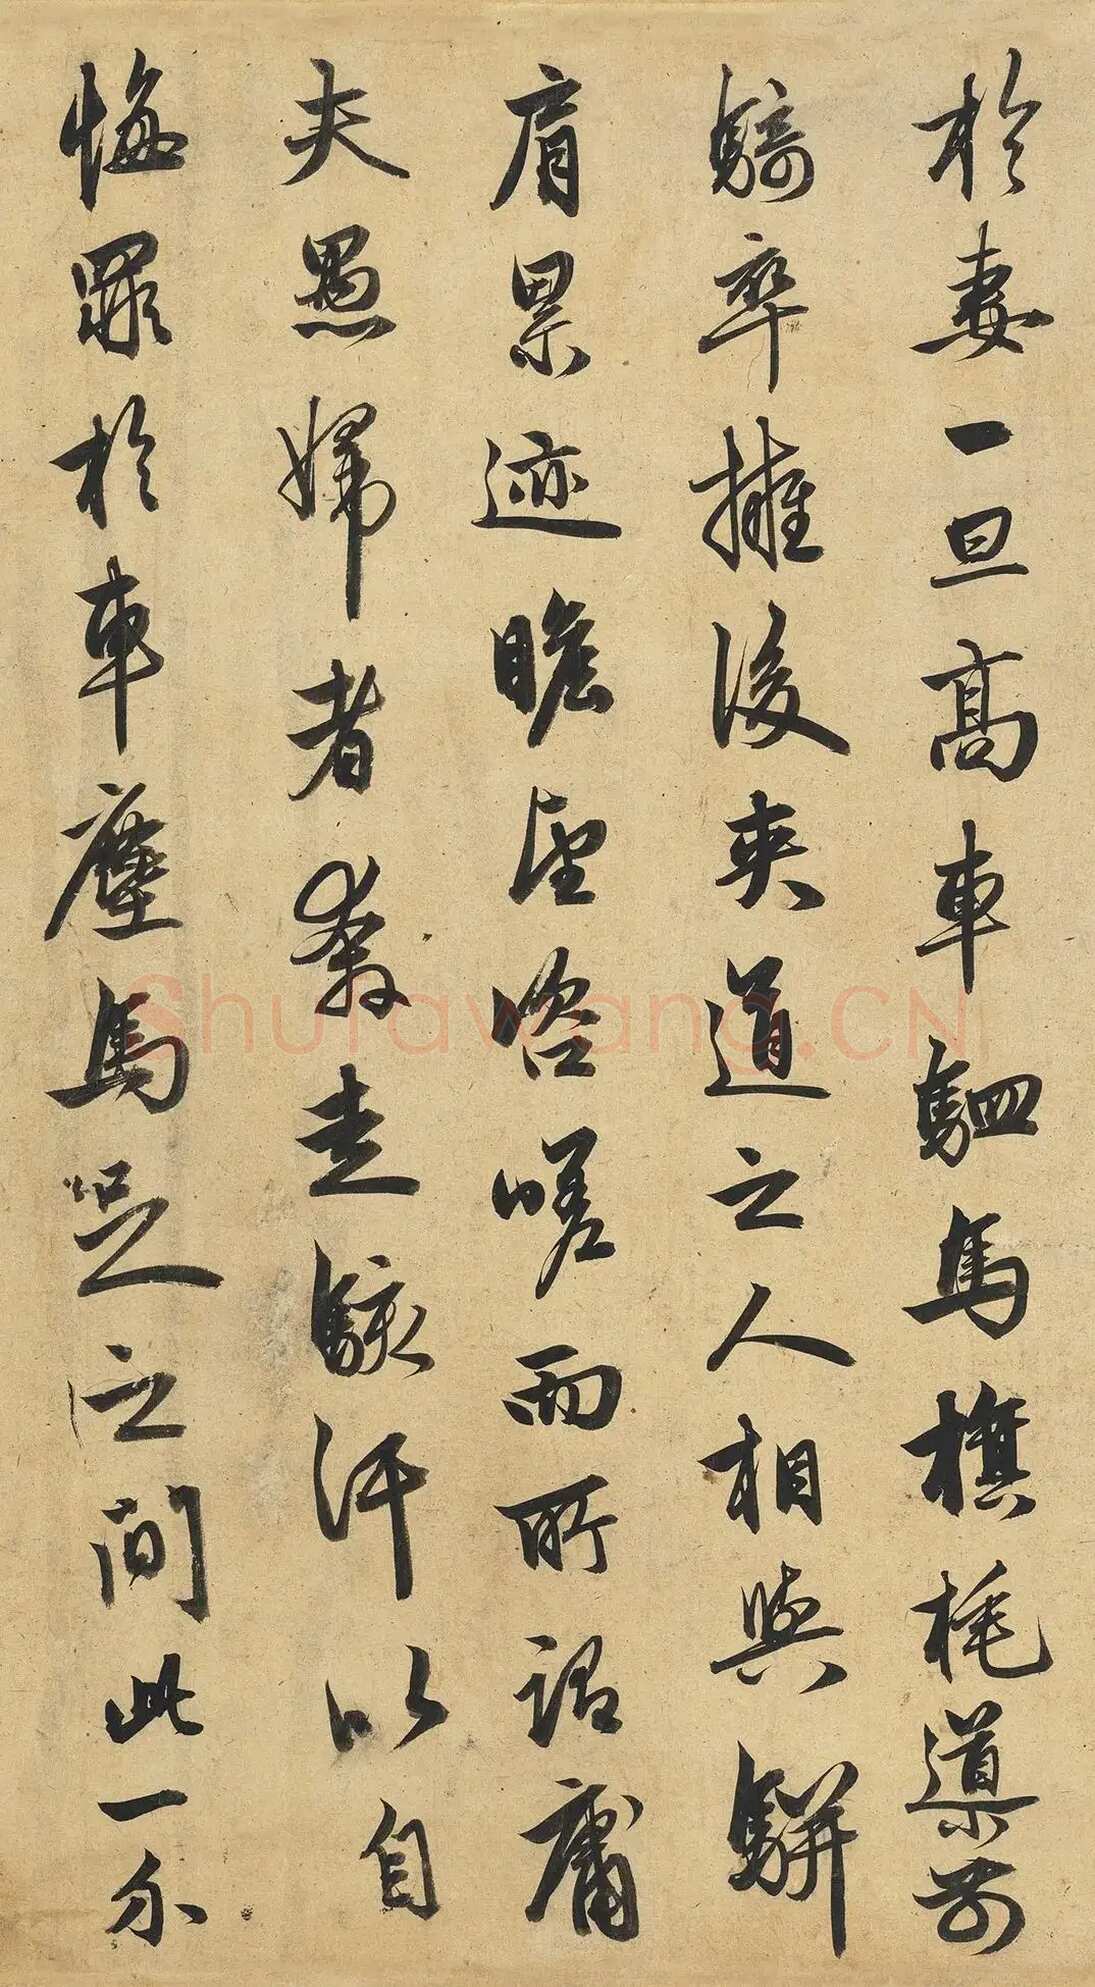 於妻一旦髙車駟馬旗旄導前
騎卒擁後夾道之人相與駢
肩累迹瞻望咨嗟而所謂庸
夫愚婦者奔走駭汗以自
悔罪於車塵馬足之間此一介
Shufawang.CN